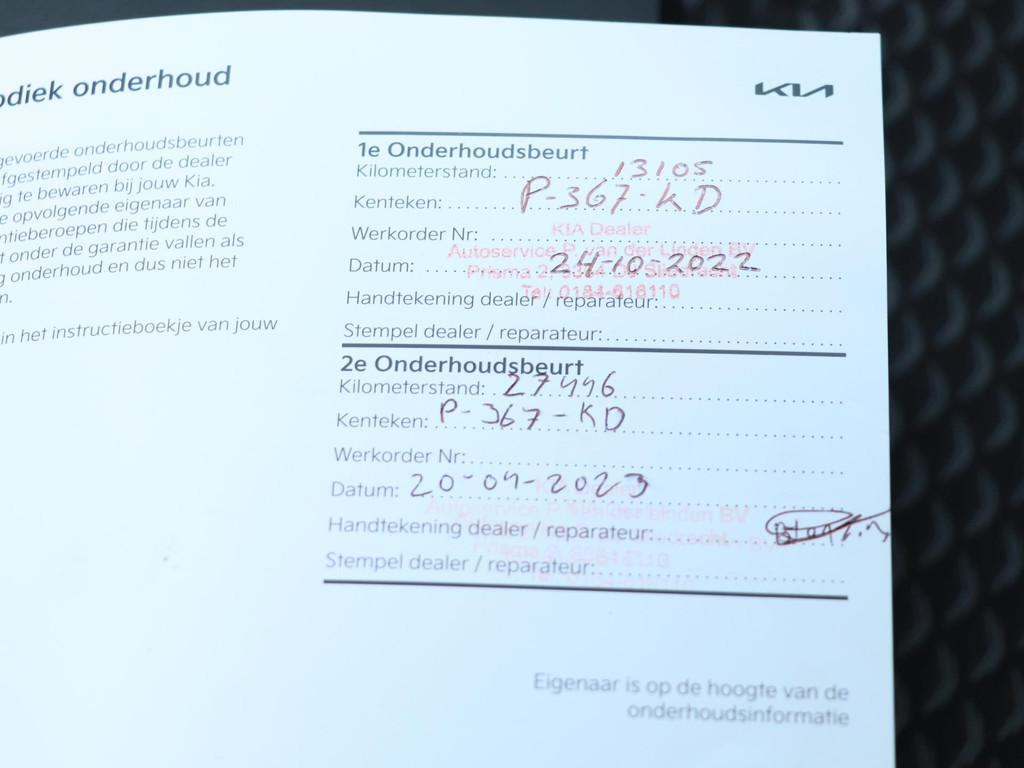 odiek onderhoud
KIA
gevoerde onderhoudsbeurten
fgestempeld door de dealer
ig te bewaren bij jouw Kia.
e opvolgende eigenaar van
ntieberoepen die tijdens de
t onder de garantie vallen als
g onderhoud en dus niet het
n.
in het instructieboekje van jouw
1e Onderhoudsbeurt
Kilometerstand: 13105
Kenteken: P-367-KD
Werkorder Nr:
KIA Dealer
Autoservice P. van der Linden BV
Datum: 24-10-2022
Prisma 2,
Tel. 0184-616110
Handtekening dealer / reparateur:
Stempel dealer / reparateur:
2e Onderhoudsbeurt
Kilometerstand: 27446
Kenteken: P-367-KD
Werkorder Nr:
Datum: 20-04-2023
Autoservice P van der Linden BV
Handtekening dealer / reparateur:
Stempel dealer / reparateur:
Eigenaar is op de hoogte van de
onderhoudsinformatie